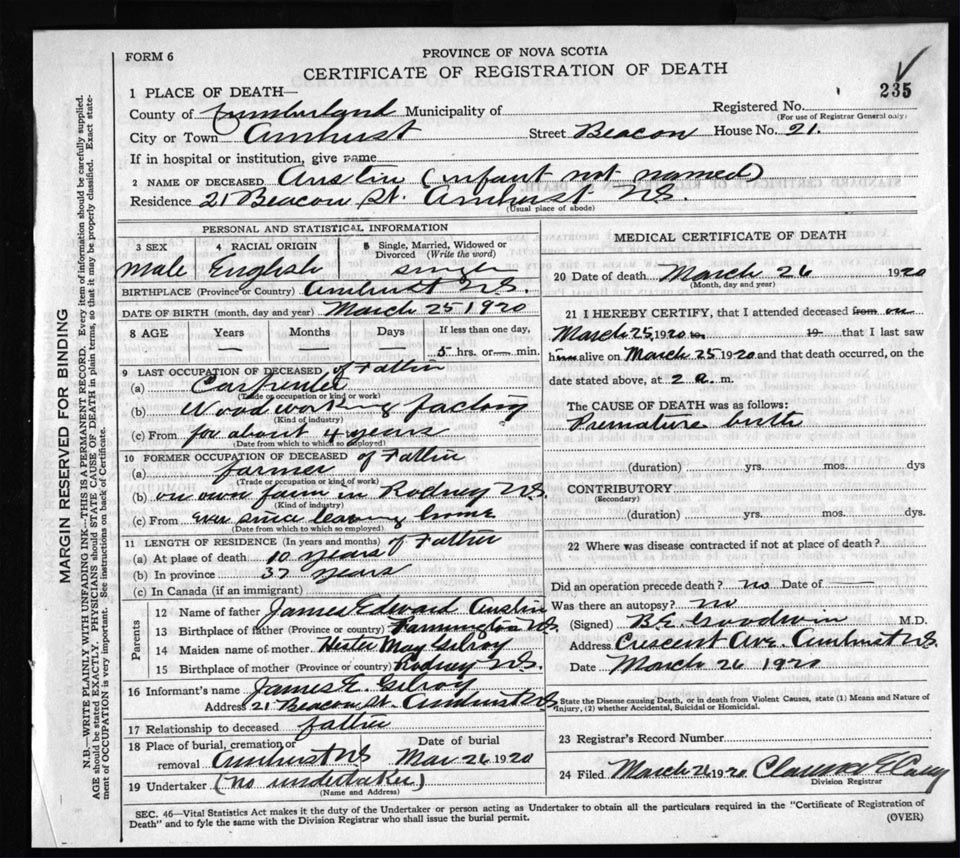 FORM 6
PROVINCE OF NOVA SCOTIA
CERTIFICATE OF REGISTRATION OF DEATH
235
1 PLACE OF DEATH—
County of Cumberland Municipality of
Registered No.
(For use of Registrar General only)
City or Town Amhurst Street Beacon House No. 21.
If in hospital or institution, give name
2 NAME OF DECEASED Austin (infant not named)
Residence 21 Beacon St. Amhurst N.S.
(Usual place of abode)
PERSONAL AND STATISTICAL INFORMATION
3 SEX 4 RACIAL ORIGIN 5 Single, Married, Widowed or Divorced (Write the word)
Male English single
BIRTHPLACE (Province or Country) Amhurst N.S.
DATE OF BIRTH (month, day and year) March 25 1920
8 AGE Years Months Days If less than one day,
— — — 5 hrs. or — min.
9 LAST OCCUPATION OF DECEASED of Father
(a) Carpenter
(Trade or occupation or kind or work)
(b) Wood working factory
(Kind of industry)
(c) From for about 4 years
(Date from which to which so employed)
10 FORMER OCCUPATION OF DECEASED of Father
(a) farmer
(Trade or occupation or kind of work)
(b) on own farm in Rodney N.S.
(Kind of industry)
(c) From ever since leaving home
(Date from which to which so employed)
11 LENGTH OF RESIDENCE (In years and months) of Father
(a) At place of death 10 years
(b) In province 37 years
(c) In Canada (if an immigrant)
Parents
12 Name of father James Edward Austin
13 Birthplace of father (Province or country) N.S.
14 Maiden name of mother Hester May Gilroy
15 Birthplace of mother (Province or country) Rodney N.S.
16 Informant's name James E. Gilroy
Address 21 Beacon St. Amhurst N.S
17 Relationship to deceased father
18 Place of burial, cremation or removal Amhurst N.S
Date of burial Mar 26 1920
19 Undertaker (no undertaker)
(Name and Address)
MEDICAL CERTIFICATE OF DEATH
20 Date of death March 26 1920
(Month, day and year)
21 I HEREBY CERTIFY, that I attended deceased from on
March 25, 1920 to 19 that I last saw
him alive on March 25 1920 and that death occurred, on the
date stated above, at 2 a. m.
The CAUSE OF DEATH was as follows:
Premature birth
(duration) yrs. mos. dys
CONTRIBUTORY
(Secondary)
(duration) yrs. mos. dys.
22 Where was disease contracted if not at place of death?
Did an operation precede death? no Date of —
Was there an autopsy? no
(Signed) B.E. Goodwin M.D.
Address Crescent Ave. Amhurst N.S
Date March 26 1920
State the Disease causing Death, or in death from Violent Causes, state (1) Means and Nature of
Injury, (2) whether Accidental, Suicidal or Homicidal.
23 Registrar's Record Number
24 Filed March 26 1920
Division Registrar
SEC. 46—Vital Statistics Act makes it the duty of the Undertaker or person acting as Undertaker to obtain all the particulars required in the "Certificate of Registration of
Death" and to fyle the same with the Division Registrar who shall issue the burial permit.
(OVER)
MARGIN RESERVED FOR BINDING
N.B.—WRITE PLAINLY WITH UNFADING INK—THIS IS A PERMANENT RECORD. Every item of information should be carefully supplied.
AGE should be stated EXACTLY. PHYSICIANS should STATE CAUSE OF DEATH in plain terms, so that it may be properly classified. Exact state-
ment of OCCUPATION is very important. See instructions on back of Certificate.